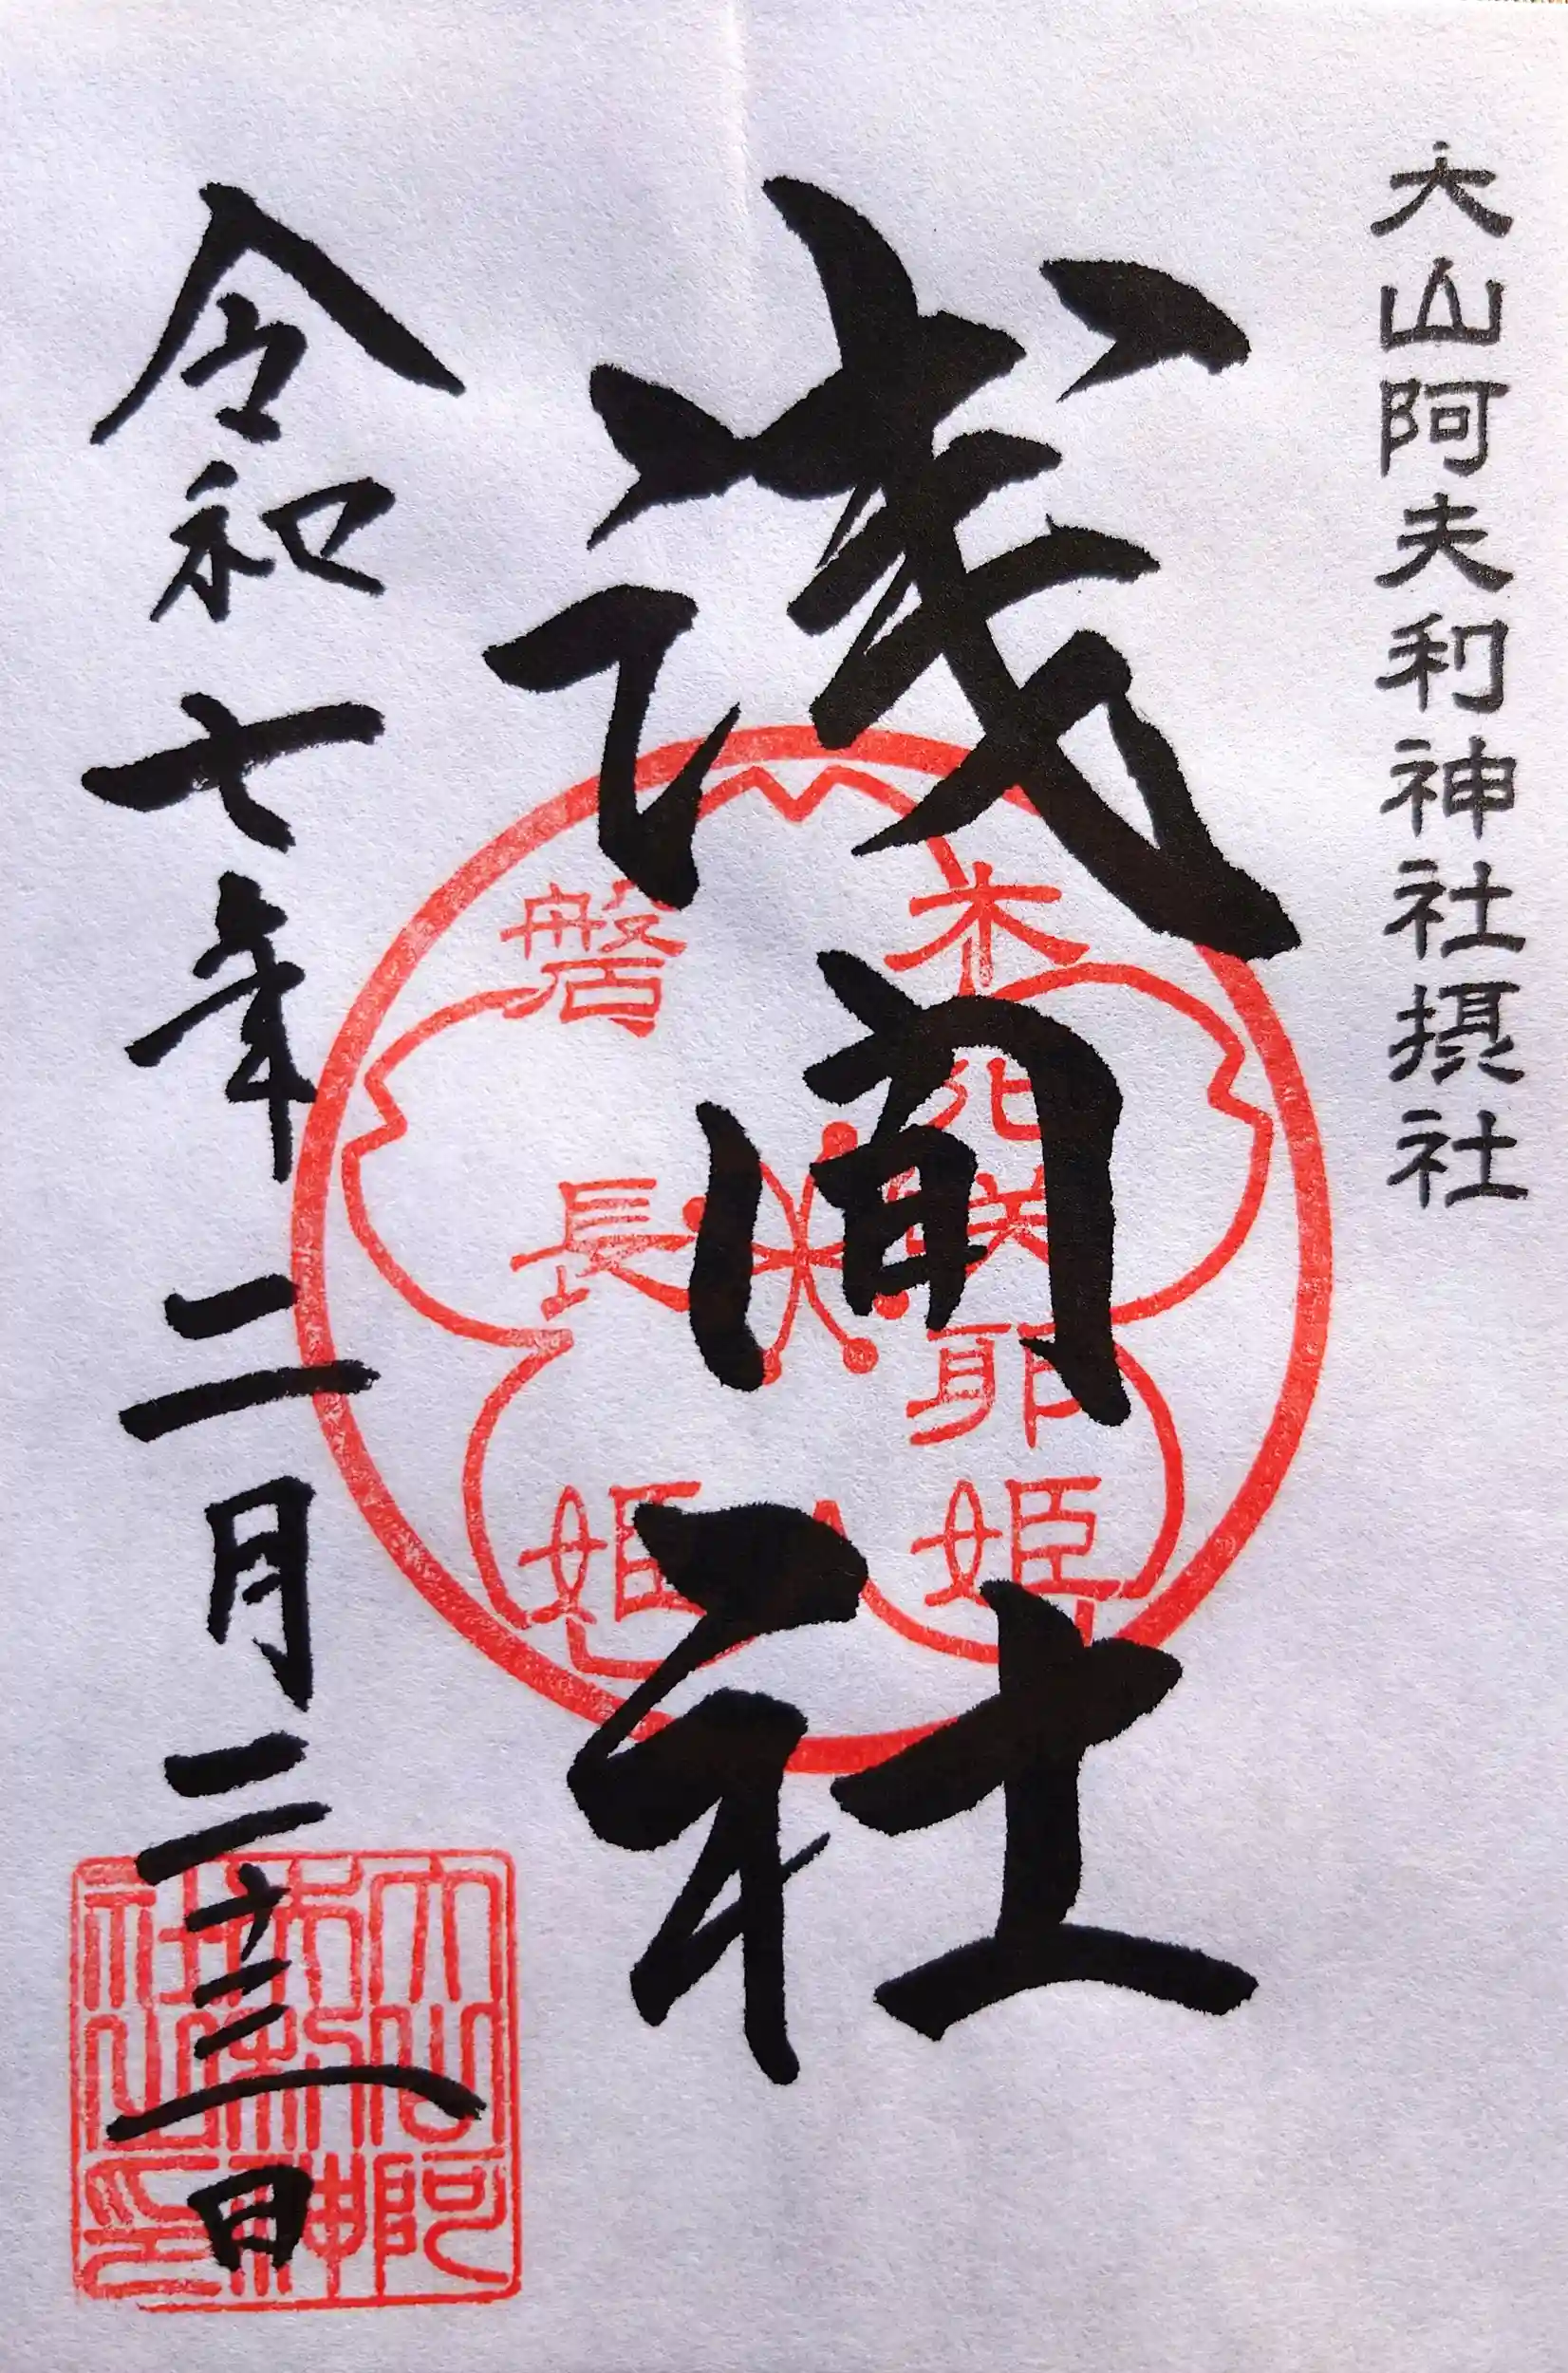 大山阿夫利神社摂社
浅間社
木花咲耶姫
磐長姫
令和七年二月二十三日
大山阿
夫利神
社之印